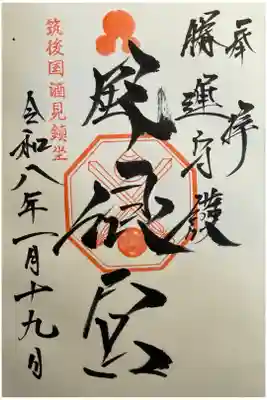 奉拝
勝運守護
風浪宮
筑後国酒見鎮座
令和八年一月十九日